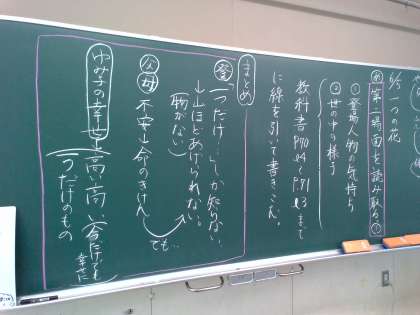 6/5 一つの花
め 第二場面を読み取る①
①登場人物の気持ち
②世の中の様子
教科書P70 l4〜P71 l3まで
に線を引いて書きこみ。
まとめ
登 一つだけ…しか知らない。
→山ほどあげられない。
(物がない)
でも…
父 母 不安→命のきけん
ゆみ子の幸せ→高い高い
一つだけのもの